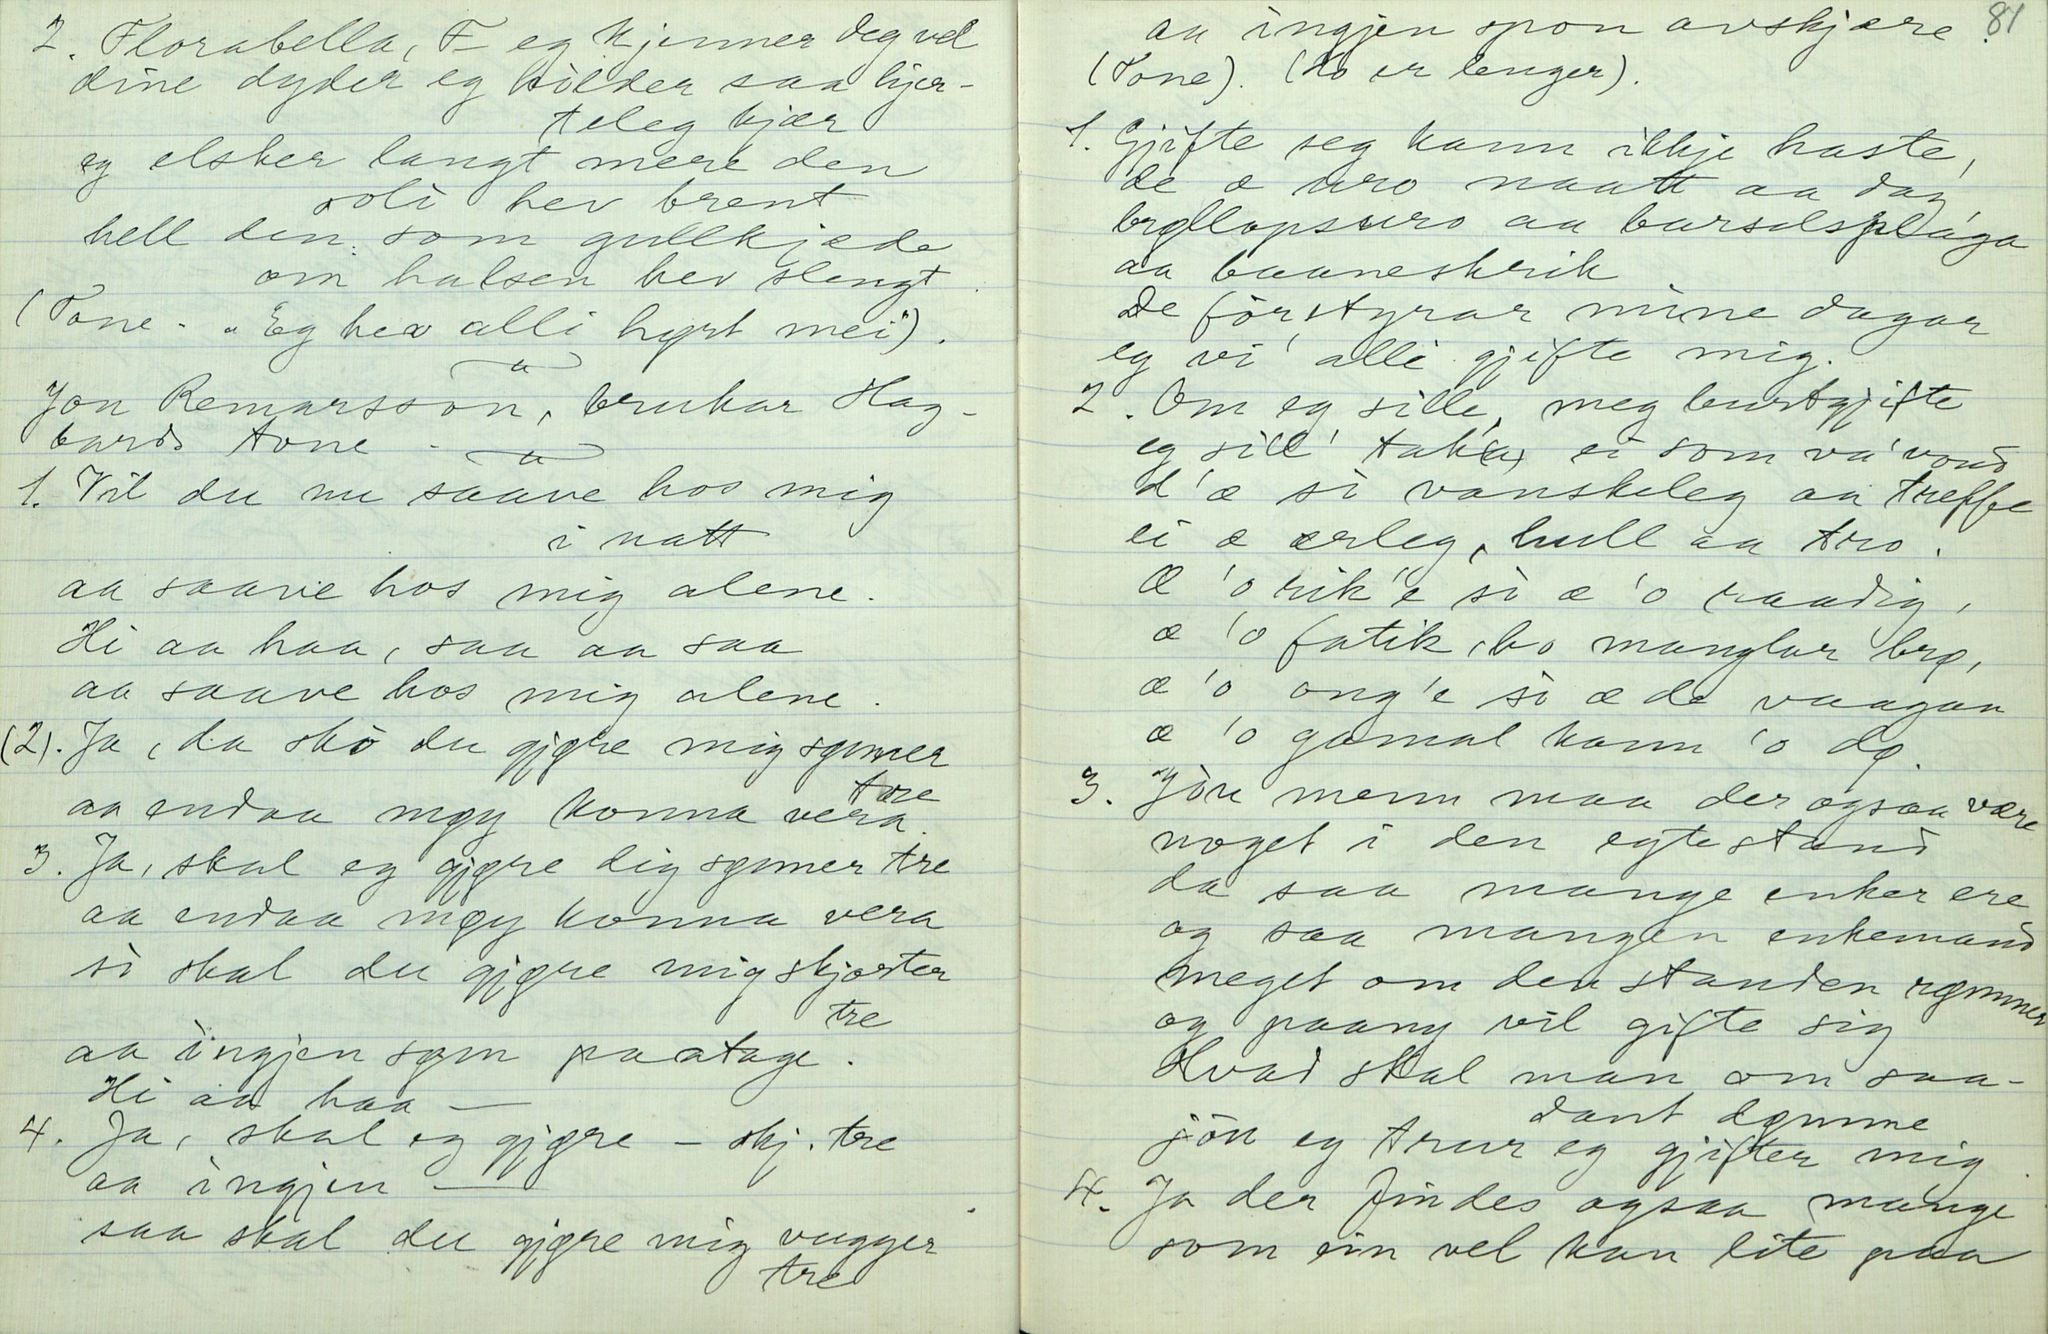 2. Florabella, F– eg kjenner deg vel
dine dyder eg hòlder saa hjer-
teleg kjær
eg elsker langt mere den
soli hev brent
hell den som gullkjæde
om halsen hev slengt.
(Tone - "Eg hev alli hørt mei").
Jon Remarsson, brukar Hag-
bards tone -
1. Vil du nu saave hos mig
i natt
aa saave hos mig alene.
Hi aa haa, saa aa saa
aa saave hos mig alene.
(2). Ja, da skò du gjøre mig sømer
tre
aa endaa møy konna vera.
3. Ja, skal eg gjøre dig sømer tre
aa endaa møy konna vera
sò skal du gjøre mig skjorter
tre
aa ingjen søm paatage.
Hi aa haa —
4. Ja, skal eg gjøre – skj. tre
aa ingjen —
saa skal du gjøre mig vugger
tre
81
aa ingjen spon avskjære.
(Tone). (do er lenger).
1. Gjifte seg kann ikkje haste,
de æ uro naatt aa dag,
brøllopsuro aa barselsplága
aa baaneskrik
De fòrstyrar mine dagar
eg vi' alli gjifte mig.
2. Om eg sille, meg burtgjifte
eg sill' tak(a) ei som va' vond
d'æ sò vanskeleg aa treffe
ei æ ærleg, hull aa tro.
Æ 'o rik'e sò æ 'o raadig,
æ 'o fatik, ho manglar brø,
æ 'o ong'e sò æ de vaagaa
æ 'o gamal kann 'o dø.
3. Jòu menn maa der ogsaa være
noget i den egtestand
da saa mange enker ere
og saa mangen enkemand
meget om den standen rømmer
og paany vil gifte sig
Hvad skal man om saa-
dant dømme
jòu eg trur eg gjifter mig.
4. Ja der findes ogsaa mange
som ein vel kan lite paa